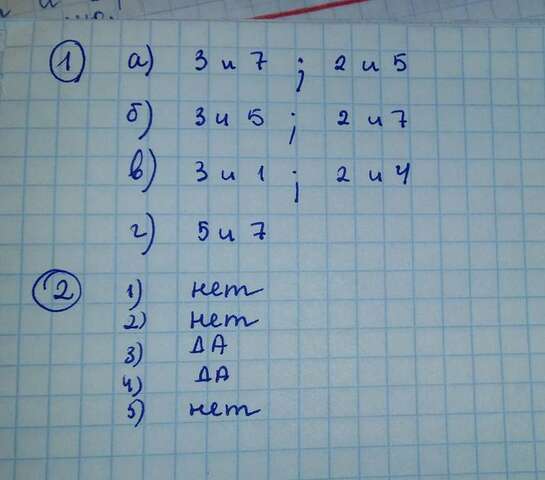 1 а) 3 и 7 ; 2 и 5
б) 3 и 5 ; 2 и 7
в) 3 и 1 ; 2 и 4
г) 5 и 7
2 1) нет
2) нет
3) ДА
4) ДА
5) нет